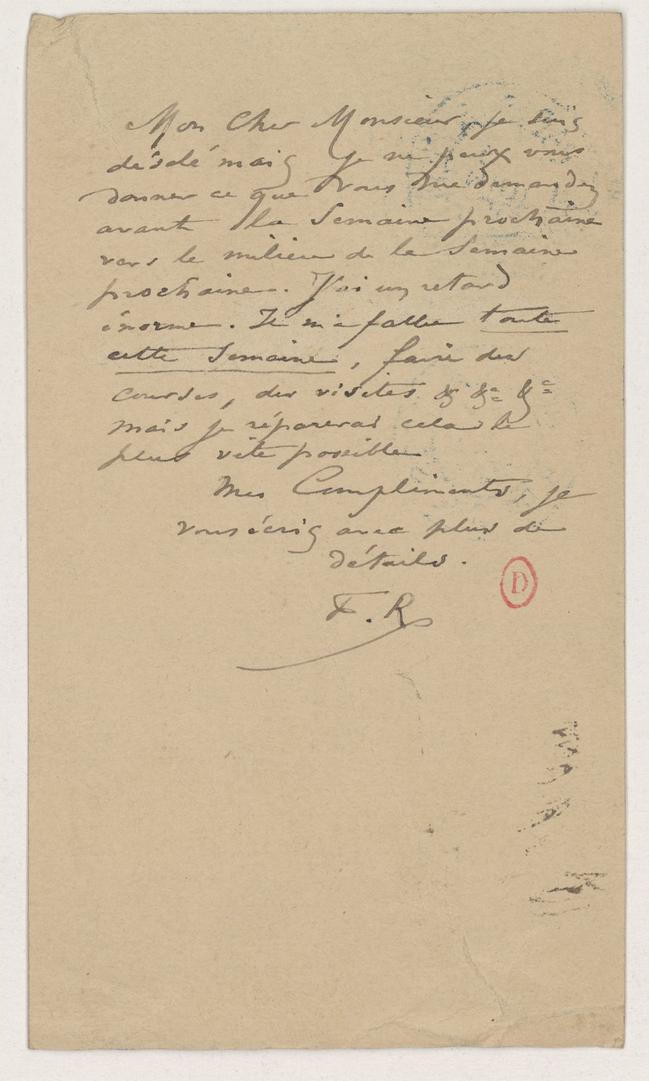 Mon Cher Monsieur, je suis
désolé mais je ne peux vous
donner ce que vous me demandez
avant la Semaine prochaine
vers le milieu de la Semaine
prochaine. J'ai un retard
énorme. Il m'a fallu toute
cette Semaine, faire des
courses, des visites & &c &c
mais je réparerai cela le
plus vite possible
Mes Compliments, je
vous écris avec plus de
détails.
D
F. R